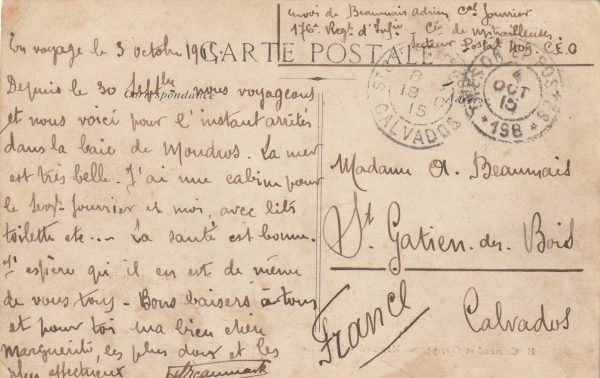 Envoi de Beaumais Adrien Cal fourrier
176e Regt d'Infie Cie de Mitrailleuses
Secteur Postal 409. C.E.O
CARTE POSTALE
Correspondance
En voyage le 3 octobre 1915
Depuis le 30 septbre nous voyageons
et nous voici pour l'instant arrêtés
dans la baie de Moudros. La mer
est très belle. J'ai une cabine pour
le Sergt fourrier et moi, avec lits
toilette etc... La santé est bonne.
J'espère qu'il en est de même
de vous tous - Bons baisers à tous
et pour toi ma bien chère
Marguerite, les plus doux et les
plus affectueux
ABeaumais
CALVADOS
18
15
OCT
15
POSTES
* 198 *
Madame A. Beaumais
St Gatien-des-Bois
Calvados
France